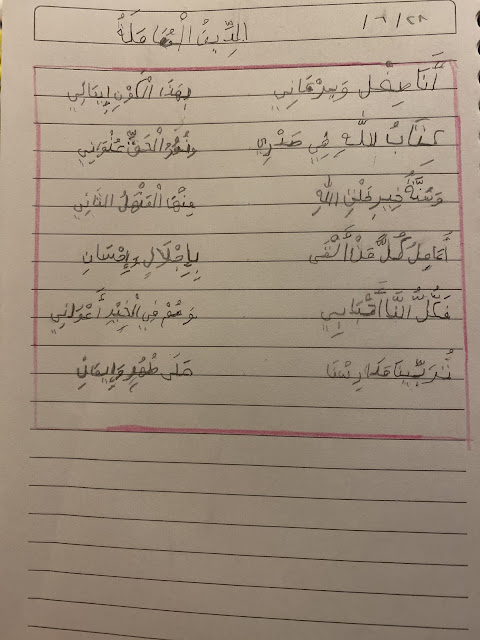 ٢٨/٦/١
الدِّينُ الْمُعَامَلَةُ
أَنَا طِفْل وَبِرْهَانِي بِهَذَا الْكَوْنِ إِيمَانِي
كِتَابُ اللَّهِ فِي صَدْرِي وَنُورُ الْحَقِّ عُنْوَانِي
وَسُنَّةُ خَيْرِ خَلْقِ اللَّهِ مِنْهَا الْمَنْهَلُ الثَّانِي
أُعَامِلُ كُلَّ مَنْ أَلْقَى بِإِجْلَالٍ وَإِحْسَانِ
فَكُلُّ النَّا أَحْبَابِي وَهُمْ فِي الْخَيْرِ أَعْوَانِي
تُرَبِّينَا مَدَارِسُنَا عَلَى طُهْرٍ وَإِيمَانِ